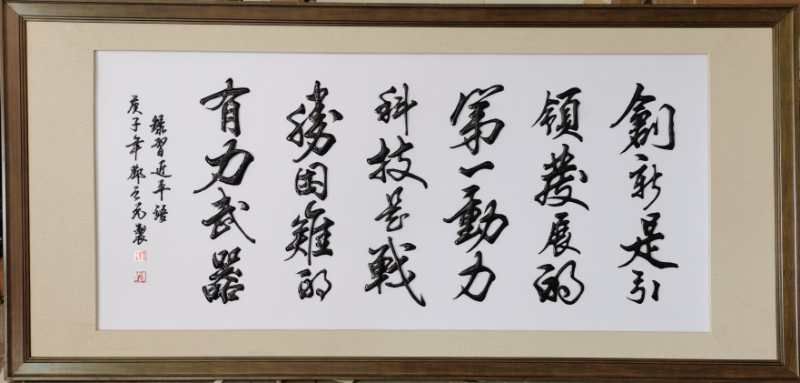 創新是引
領發展的
第一動力
科技是戰
勝困難的
有力武器
錄習近平語
庚子年鄭
製